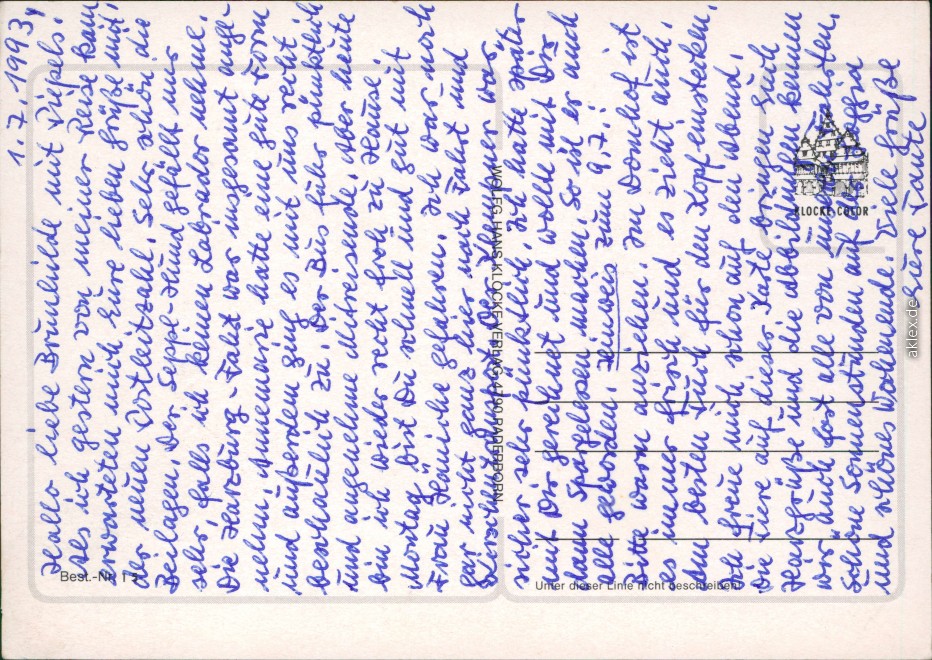 1.7.1993,
Hallo liebe Brunhilde mit Piepels!
Als ich gestern von meiner Reise kam
erwarteten mich Eure lieben Grüße mit
der neuen Postleitzahl. Sehr schön die
Beilagen. Der Seppl-Hund gefällt mir
sehr, falls ich keinen Labrador nehme.
Die Harzburg-Fahrt war insgesamt ange-
nehm. Annemarie hatte eine gute Form
und außerdem ging es mit uns recht
beschaulich zu. Der Bus fuhr pünktlich
und angenehme Mitreisende. Aber heute
bin ich wieder recht froh zu Hause!
Montag bist Du schnell und gut mit
Frau Heinicke gefahren. Ich war noch
gar nicht ganz hier nach Fahrt und
der Spargelesser war
sicher sehr pünktlich. Ich hatte später
mit Dir gerechnet und wollte mit Dir
dann Spargelessen machen. So ist er auch
alle geworden. Hinweis zum 9.7.:
Bitte warm anziehen. Im Domhof ist
es immer frisch und es zieht auch.
Am besten Tuch für den Kopf einstecken.
Ich freue mich schon auf den Abend.
Die Tiere auf dieser Karte bringen Euch
Harzgrüße und die Abbildungen kennen
wir auch fast alle von
Schöne Sonnenstunden auf
und schönes Wochenende. Viele Grüße
Eure Tante
WOLFG. HANS KLOCKE VERLAG 4790 PADERBORN
KLOCKE COLOR
Best.-Nr.
Unter dieser Linie nicht beschreiben!
aklex.de